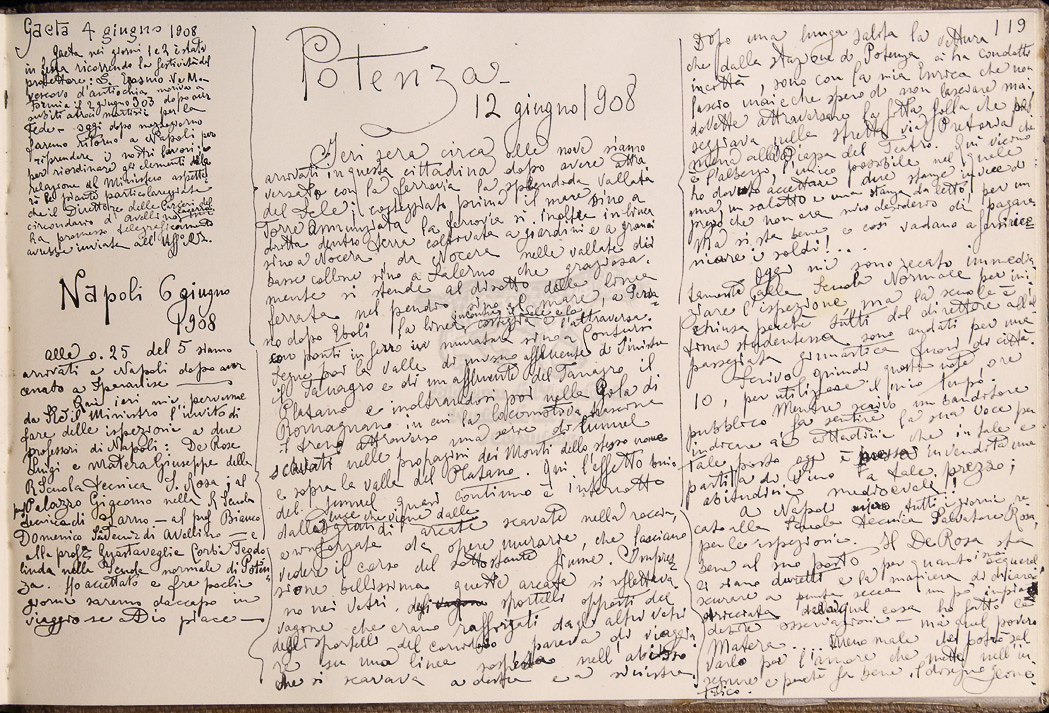 119
Gaeta 4 giugno 1908
Gaeta nei giorni 1 e 2 è stata
in festa ricorrendo la festività del
protettore: S. Erasmo
vescovo d'Antiochia
Formia il 2 giugno 303 dopo aver
subiti atroci martirii per la
Fede — oggi dopo mezzogiorno
faremo ritorno a Napoli per
riprendere i nostri lavori; e
per riordinare gli elementi della
relazione al Ministero
che il Direttore delle Carceri del
circondario d'Avellino
ha promesso telegraficamente
avermi inviate all'
Napoli 6 giugno
1908
alle 0.25 del 5 siamo
arrivati a Napoli dopo aver
cenato a Sparanise
Qui ieri mi pervenne
da il Ministero l'invito di
fare delle ispezioni a due
professori di Napoli: De Rosa
Luigi e Matera Giuseppe della
R. Scuola Tecnica S. Rosa; al
prof Palazzo Giacomo nella R. Scuola
Tecnica di Sarno — al prof. Bianco
Domenico di Avellino — e
alla prof.ª Quartaveglia Corbi Teodo
linda nella Scuola normale di Poten
za. Ho accettato e fra pochi
giorni saremo daccapo in
viaggio se a Dio piace —
Potenza —
12 giugno 1908
Ieri sera circa alle nove siamo
arrivati in questa cittadina dopo avere attra
versata con la ferrovia la splendida vallata
del Sele; costeggiato prima il mare sino a
Torre Annunziata la ferrovia si inoltra in linea
dritta dentro terra coltivata a giardini e a grano
sino a Nocera; da Nocera nelle vallate di
basse colline sino a Salerno che graziosa-
mente si stende al disotto della linea
ferrata nel pendio sino al mare, a
no dopo Eboli la linea incontra il Sele e lo
con ponti in ferro in muratura sino a Contursi
segue poi la valle di un grosso affluente di sinistra
il Tanagro e di un affluente del Tanagro il
Platano e inoltrandosi poi nella Gola di
Romagnano in cui la locomotiva trascina
il treno attraverso una serie di tunnel
scavati nelle propagini dei Monti dello stesso nome
e sopra la valle del Platano. Qui l'effetto buio
del tunnel quasi continuo è interrotto
dalla luce che viene dalle
grandi arcate scavate nella roccia,
o rafforzate da opere murarie, che lasciano
vedere il corso del sottostante fiume. Impres
sione bellissima queste arcate si riflettevano
no nei vetri degli vagone sportelli opposti del
vagone che erano raffigati dagli altri vetri
degli sportelli del corridoio pareva di viaggia
re su una linea sospesa nell'abisso
che si scavava a destra e a sinistra.
Dopo una lunga salita la vettura
che dalla stazione di Potenza ci ha condotti
in città, sono con la mia Enrica che non
lascio mai e che spero di non lasciare mai
dovette attraversare la fitta folla che pas
seggiava nella stretta via Pretoria che
mena alla piazza del Teatro. Qui vicino
è l'albergo, unico possibile nel quale
ho dovuto accettare due stanze invece di
una, un salotto e una stanza da letto, per un
prezzo che non era mio desiderio di pagare
Ma si sta bene e così vadano a farsi
i soldi!...
Oggi mi sono recato immedia
tamente alla Scuola Normale per ini
ziare l'ispezione, ma la scuola è
chiusa perché tutti dal direttore all'ul
tima studentessa sono andati per una
passeggiata ginnastica fuori di città
Scrivo quindi queste note, ore
10, per utilizzare il mio tempo.
Mentre scrivo un banditore
pubblico fa sentire la sua voce per
indicare ai cittadini che in tale e
tale posto oggi è messa in vendita una
partita di vino a tale prezzo;
abitudini medioevali!!
A Napoli tutti i giorni re
cato alla Scuola Tecnica Salvatore Rosa
per le ispezioni. Il De Rosa sta
bene al suo posto per quanto
ci siano difetti e la maniera di
scurare a penna secca un po'
arricciata della qual cosa ho fatto la
debita osservazione — ma quel povero
Matera... Meno male del potersal
varlo per l'amore che mette nell'in
segnare e perché fa bene il disegno geome
trico.